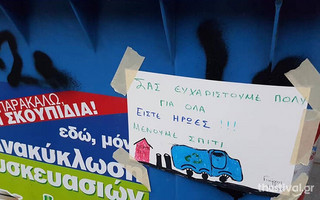 ΠΑΡΑΚΑΛΩ,
ΣΚΟΥΠΙΔΙΑ!
εδώ, μόν
νακύκλωση
υσκευασιών
ΣΑΣ ΕΥΧΑΡΙΣΤΟΥΜΕ ΠΟΛΥ
ΓΙΑ ΟΛΑ
ΕΙΣΤΕ ΗΡΩΕΣ !!!
ΜΕΝΟΥΜΕ ΣΠΙΤΙ
thestival.gr